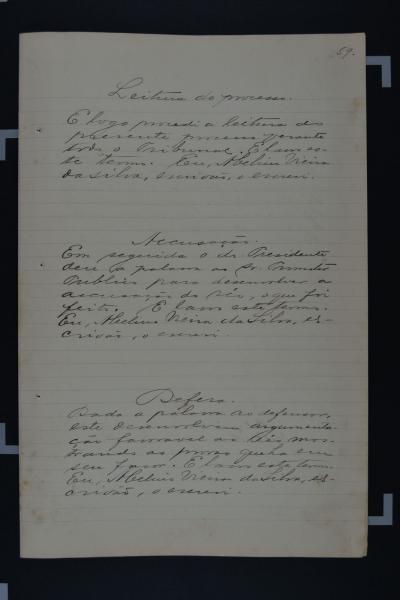 59.
Leitura do processo.
E logo procedi a leitura do
presente processo perante
todo o Tribunal. E lavro es-
te termo. Eu, Abelius Vieira
da Silva, escrivão, o escrevi.
Accusação.
Em seguida o dr. Presidente
deu a palavra ao Dr. Promotor
Publico para desenvolver a
accusação do réo, o que foi
feito. E lavro este termo.
Eu, Abelius Vieira da Silva, es-
crivão, o escrevi.
Defesa.
Dada a palavra ao defensor,
este desenvolveu argumenta-
ção favoravel ao réo, mos-
trando as provas que ha em
seu favor. E lavro este termo.
Eu, Abelius Vieira da Silva, es-
crivão, o escrevi.